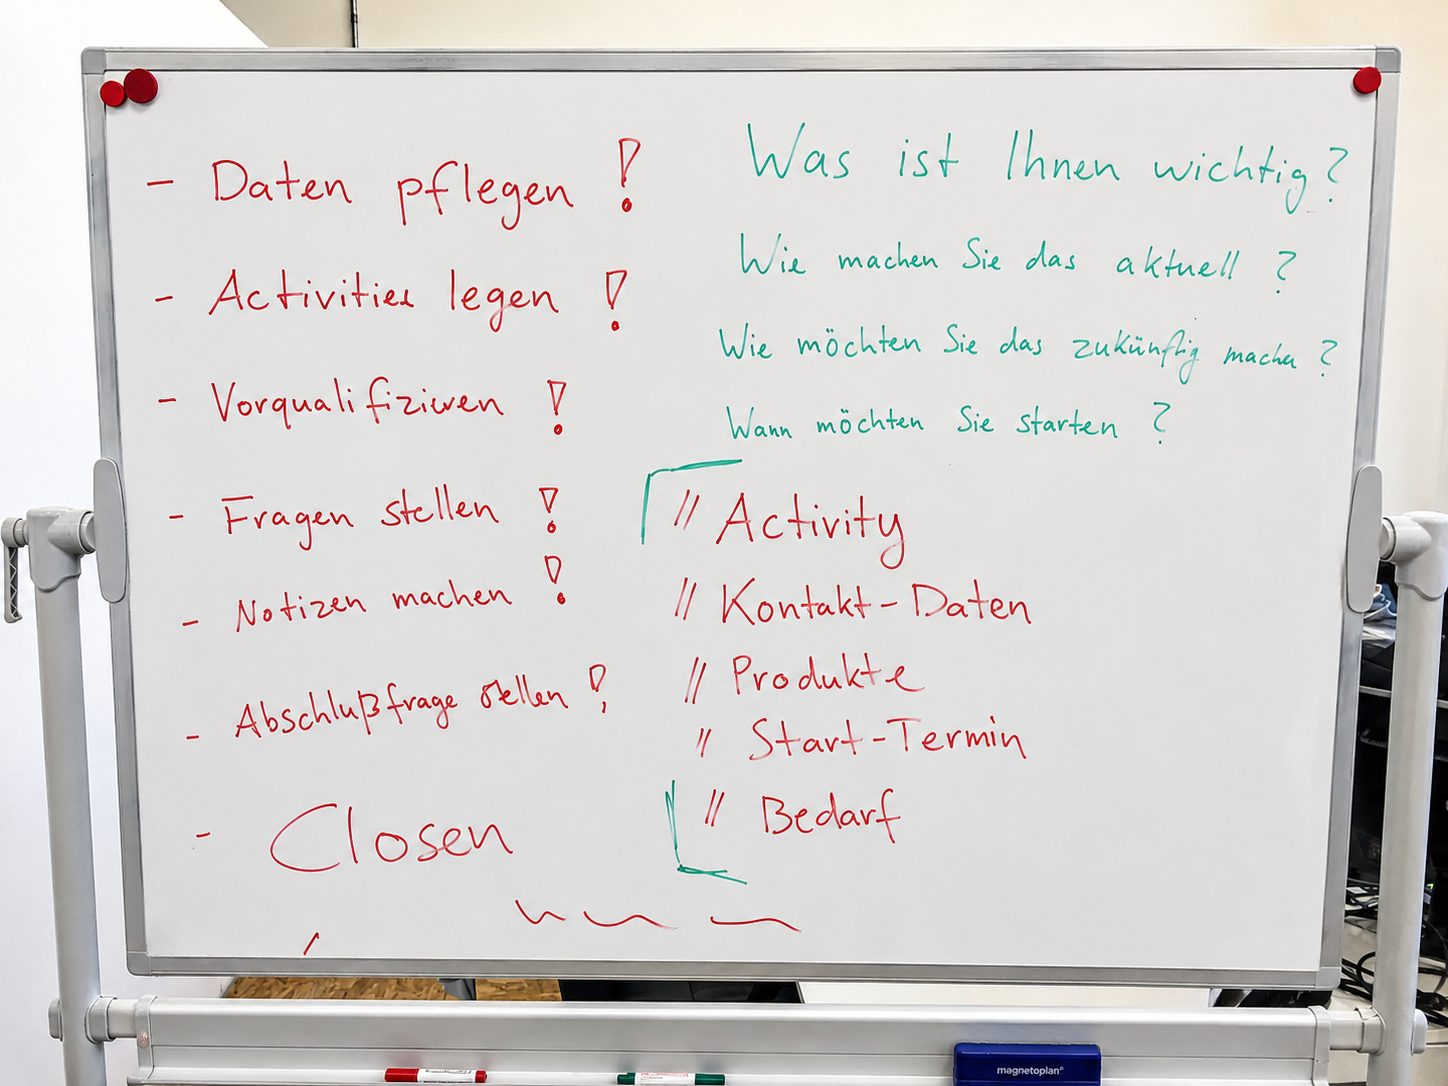 - Daten pflegen !
- Activities legen !
- Vorqualifizieren !
- Fragen stellen !
- Notizen machen !
- Abschlußfrage stellen !
- Closen
Was ist Ihnen wichtig ?
Wie machen Sie das aktuell ?
Wie möchten Sie das zukünftig machen ?
Wann möchten Sie starten ?
// Activity
// Kontakt-Daten
// Produkte
// Start-Termin
// Bedarf
magnetoplan®